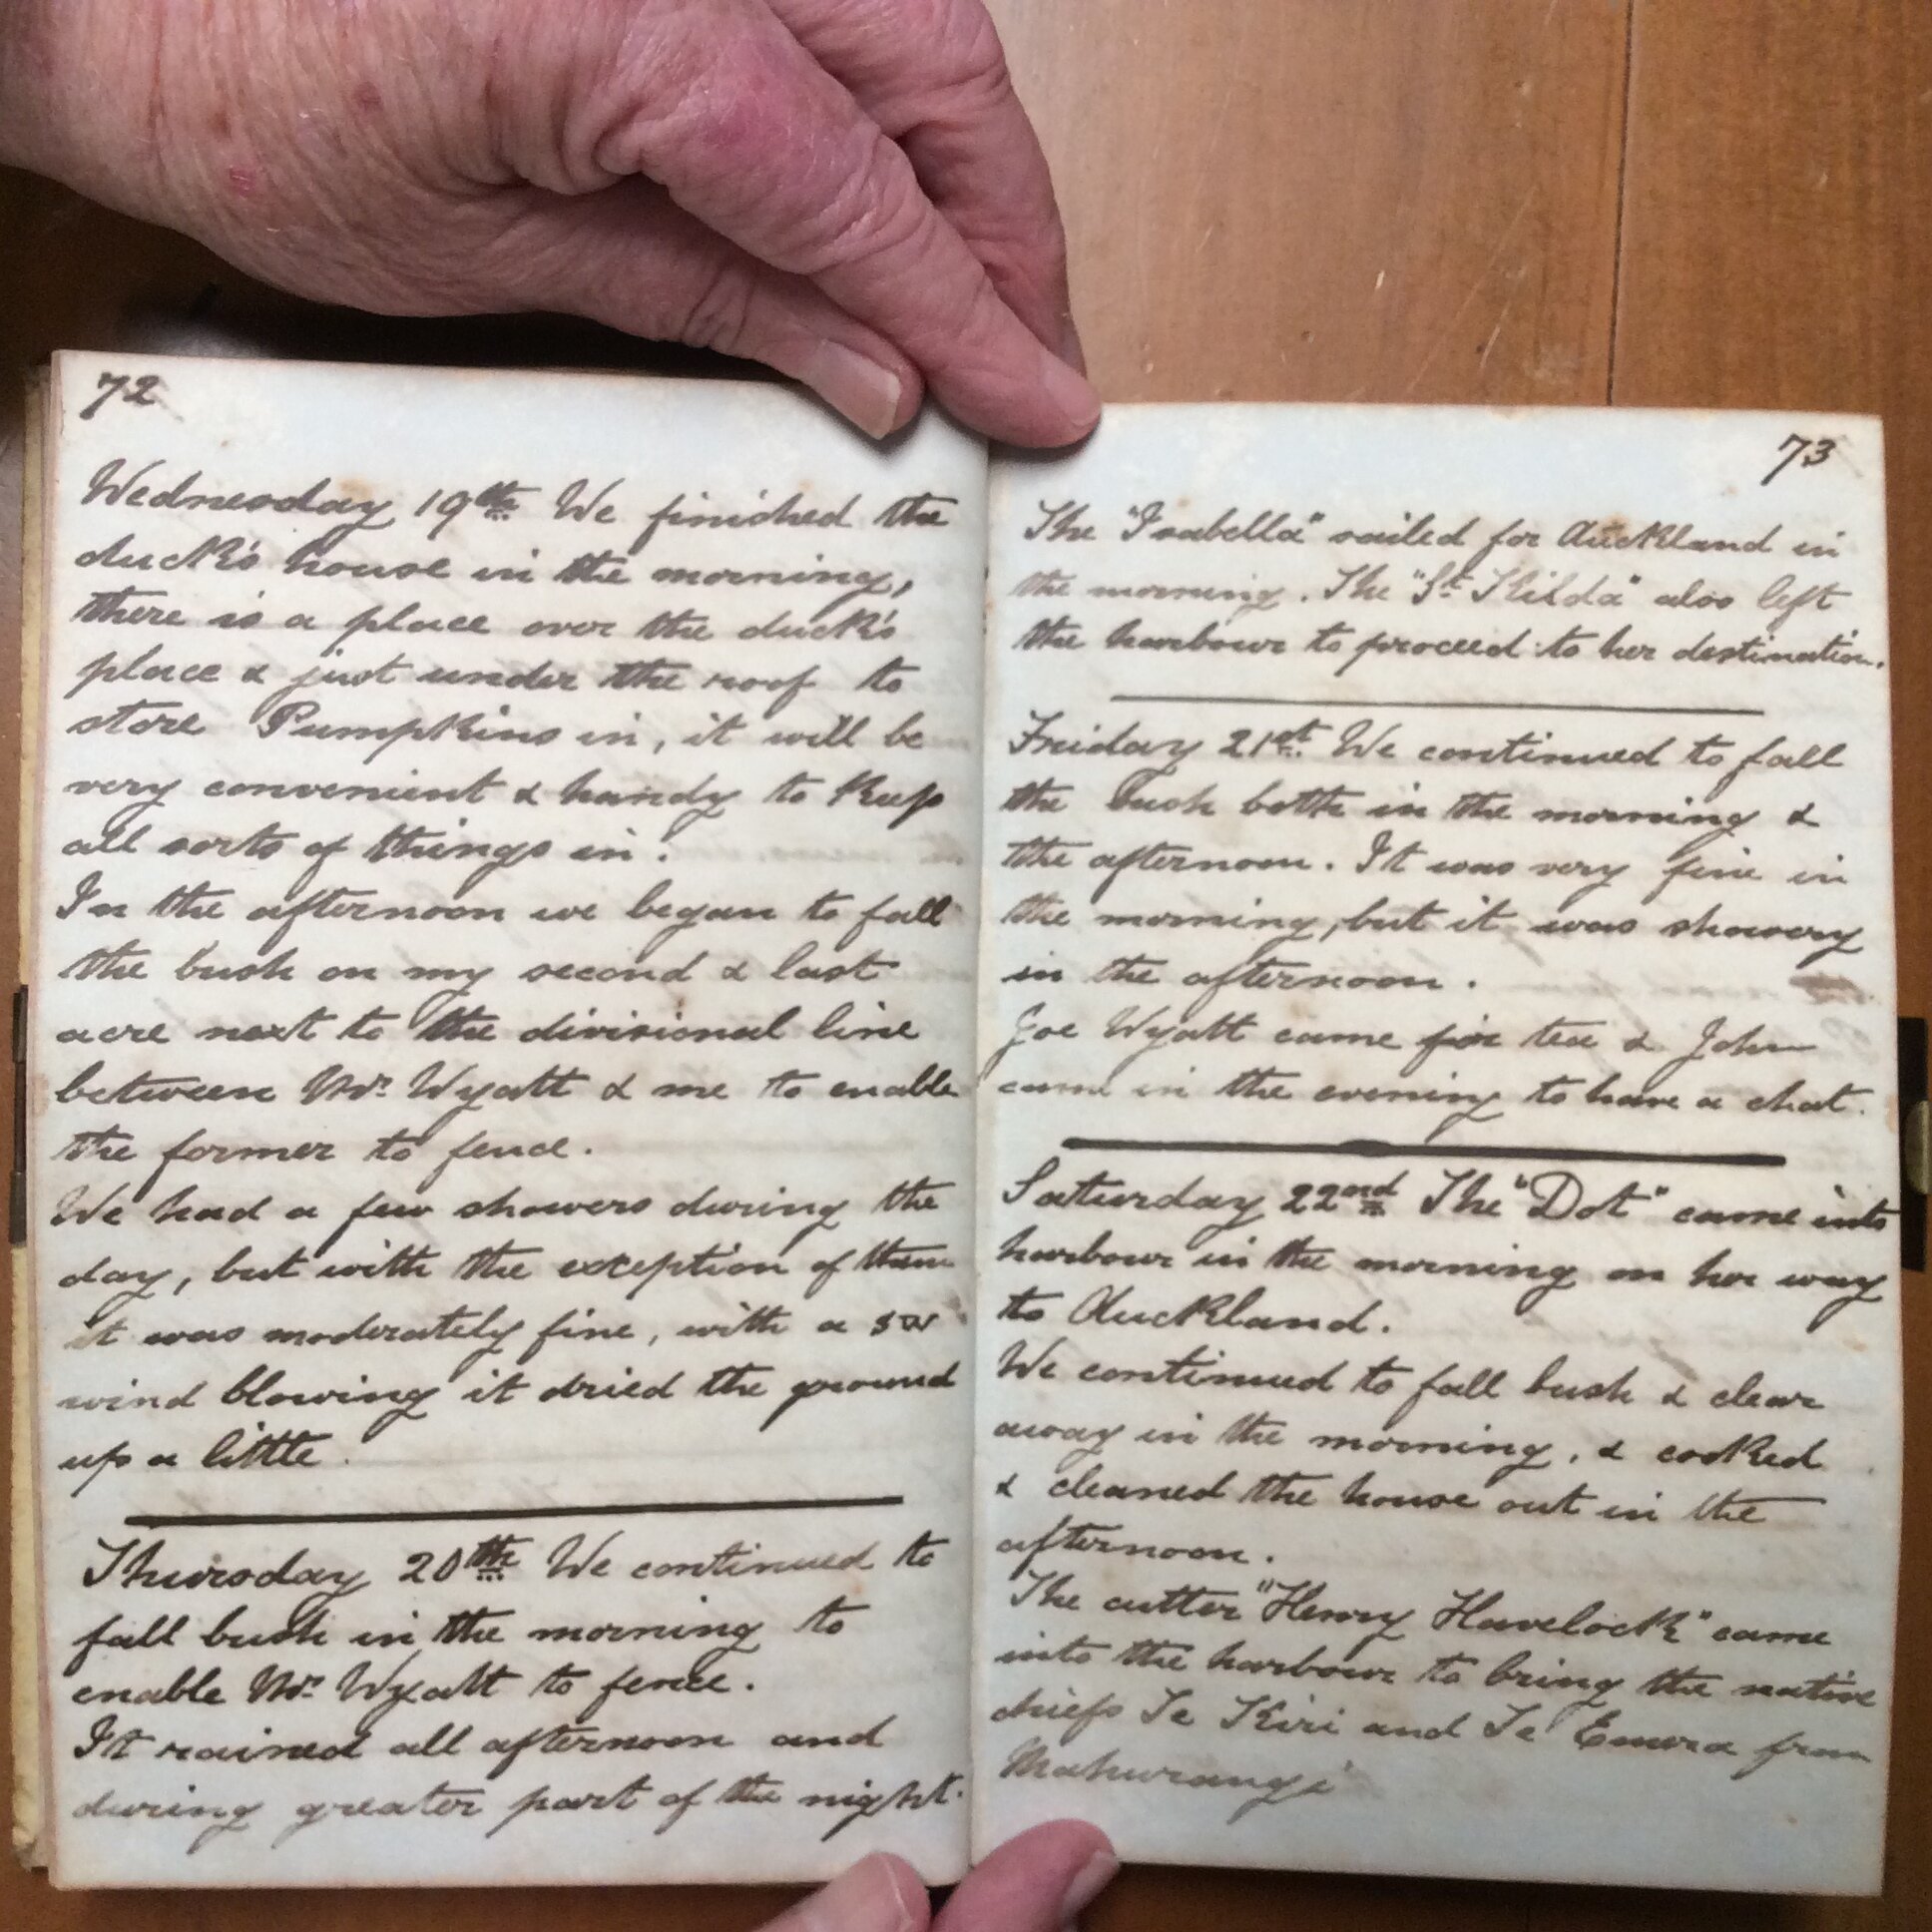 72
Wednesday 19th We finished the
duck's house in the morning,
there is a place over the duck's
place & just under the roof to
store Pumpkins in, it will be
very convenient & handy to keep
all sorts of things in.
In the afternoon we began to fall
the bush on my second & last
acre next to the divisional line
between Mr. Wyatt & me to enable
the former to fence.
We had a few showers during the
day, but with the exception of them
it was moderately fine, with a SW
wind blowing it dried the ground
up a little.
Thursday 20th We continued to
fall bush in the morning to
enable Mr. Wyatt to fence.
It rained all afternoon and
during greater part of the night.
73
The "Isabella" sailed for Auckland in
the morning. The "St Kilda" also left
the harbour to proceed to her destination.
Friday 21st We continued to fall
the Bush both in the morning &
the afternoon. It was very fine in
the morning, but it was showery
in the afternoon.
Joe Wyatt came for tea & John
came in the evening to have a chat.
Saturday 22nd The "Dot" came into
harbour in the morning on her way
to Auckland.
We continued to fall bush & clear
away in the morning, & cooked
& cleaned the house out in the
afternoon.
The cutter "Henry Havelock" came
into the harbour to bring the native
chiefs Te Kiri and Te Emera from
Mahurangi